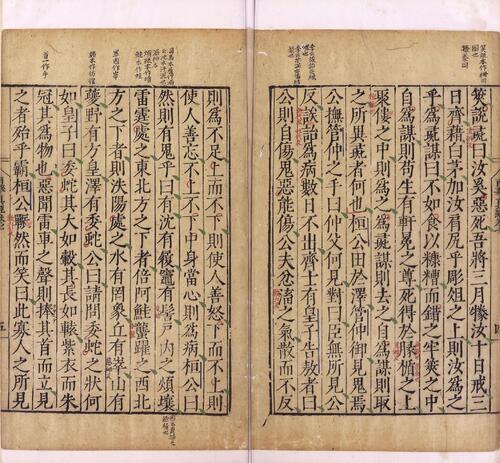 筴說彘曰汝奚惡死吾將三月㹖汝十日戒三
日齊藉白茅加汝肩尻乎彫俎之上則汝為之
乎為彘謀曰不如食以糠糟而錯之牢筴之中
自為謀則苟生有軒冕之尊死得於腞楯之上
聚僂之中則為之為彘謀則去之自為謀則取
之所異彘者何也桓公田於澤管仲御見鬼焉
公撫管仲之手曰仲父何見對曰臣無所見公
反誒詒為病數日不出齊士有皇子告敖者曰
公則自傷鬼惡能傷公夫忿滀之氣散而不反
則為不足上而不下則使人善怒下而不上則
使人善忘不上不下中身當心則為病桓公曰
然則有鬼乎曰有沈有履竈有髻戶內之煩壤
雷霆處之東北方之下者倍阿鮭蠪躍之西北
方之下者則泆陽處之水有罔象丘有峷山有
夔野有方皇澤有委蛇公曰請問委蛇之狀何
如皇子曰委蛇其大如轂其長如轅紫衣而朱
冠其為物也惡聞雷車之聲則捧其首而立見
之者殆乎霸桓公囅然而笑曰此寡人之所見
首一作手